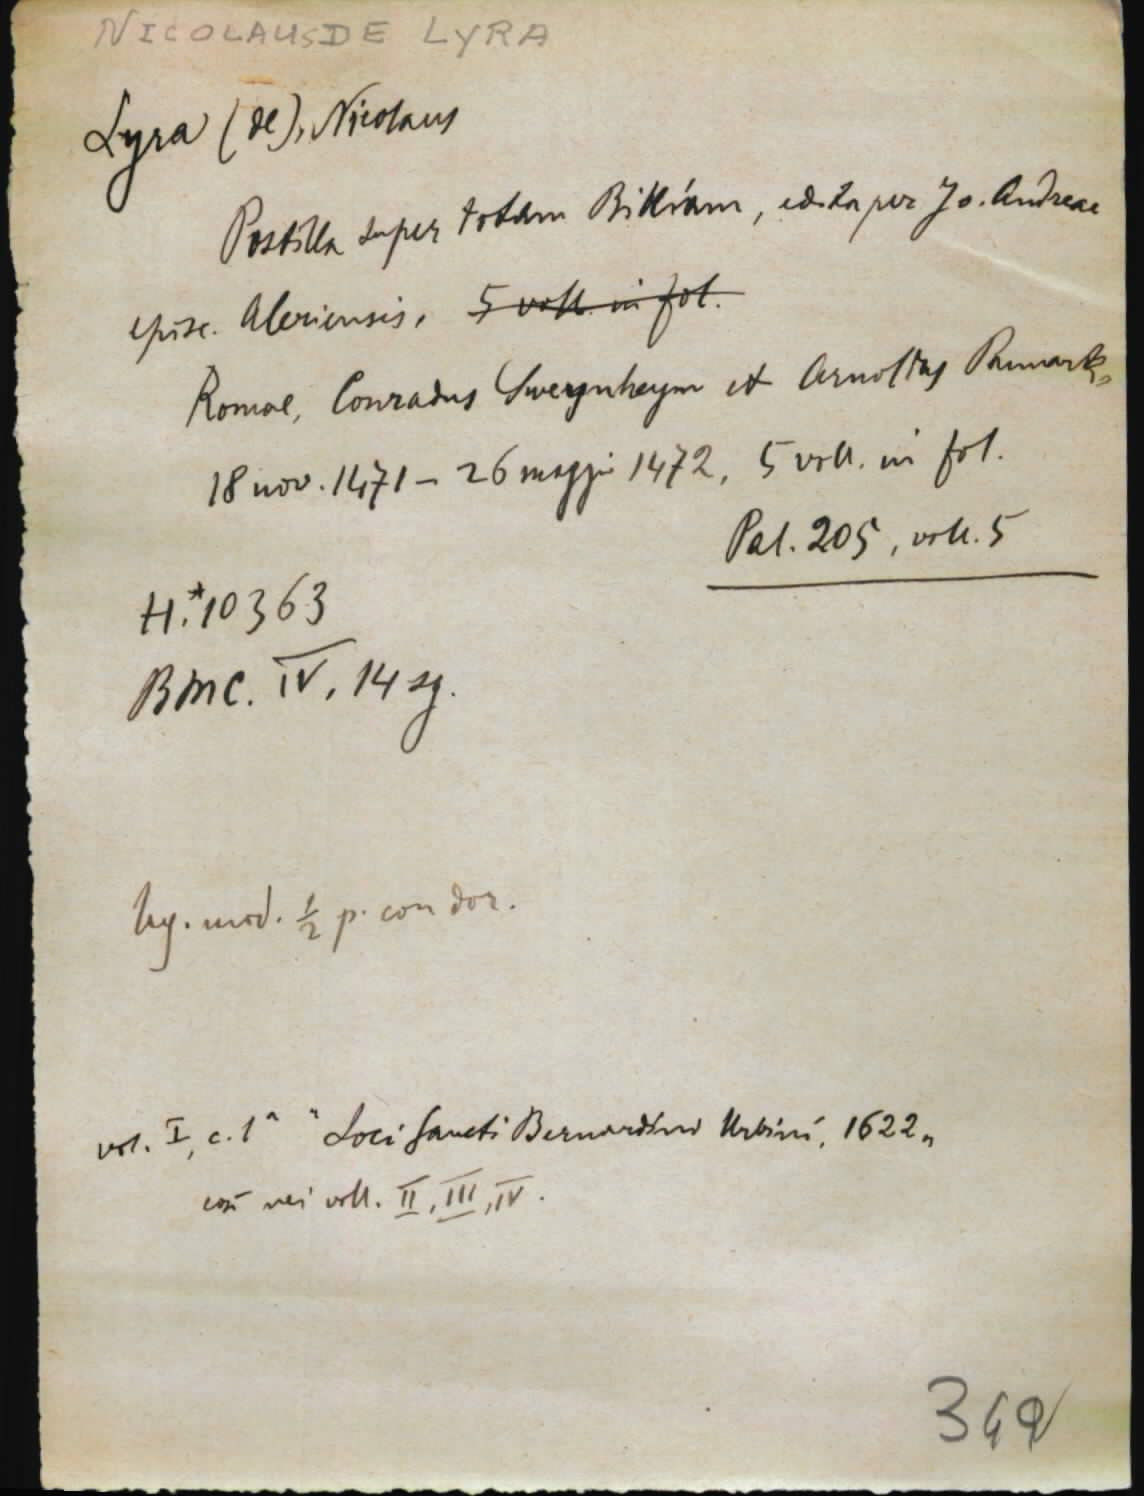 NICOLAUS DE LYRA
Lyra (de), Nicolaus
Postilla super totam Bibliam, edita per Jo. Andreae
episc. Aleriensis, 5 voll. in fol.
Romae, Conradus Sweynheym et Arnoldus Pannartz,
18 nov. 1471 – 26 maggio 1472, 5 voll. in fol.
Pal. 205, voll. 5
H.*10363
BMC. IV, 14 sg.
leg. mod. 1/2 p. con dor.
vol. I, c. 1ª "Loci Sancti Bernardini Urbini, 1622"
così nei voll. II, III, IV.